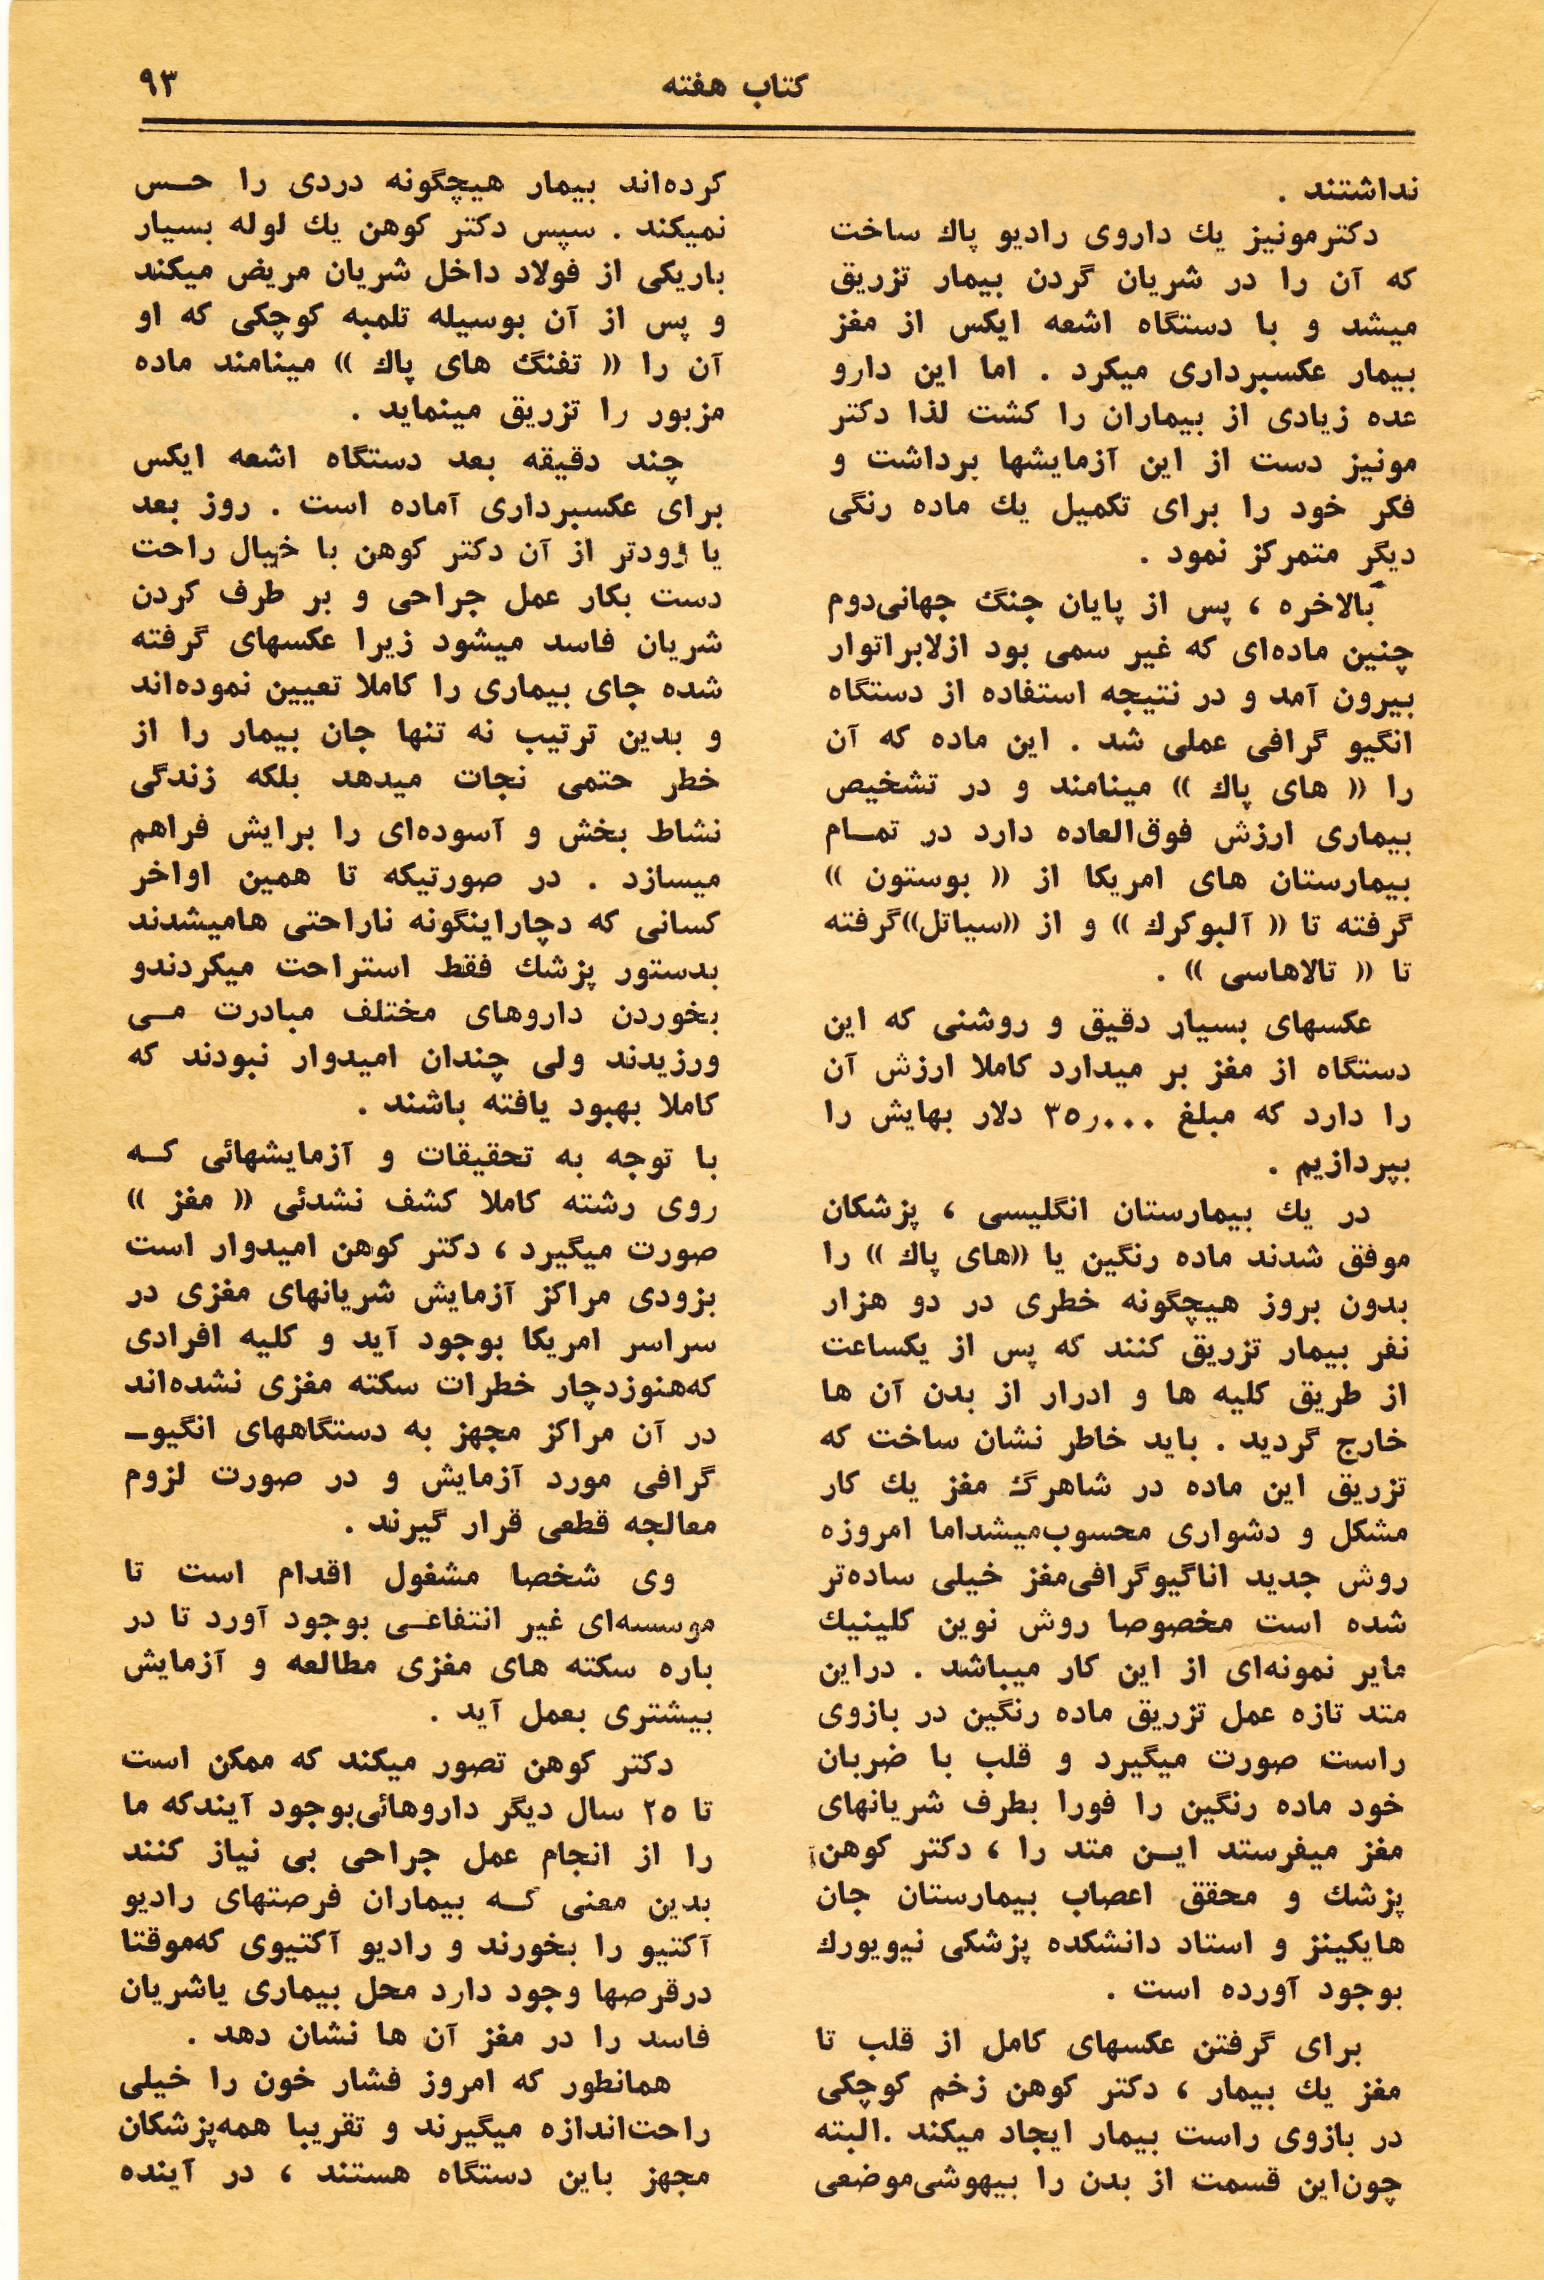 کتاب هفته
۹۳
نداشتند .
دکترمونیز یك داروی رادیو پاك ساخت
که آن را در شریان گردن بیمار تزریق
میشد و با دستگاه اشعه ایکس از مغز
بیمار عکسبرداری میکرد . اما این دارو
عده زیادی از بیماران را کشت لذا دکتر
مونیز دست از این آزمایشها برداشت و
فکر خود را برای تکمیل یك ماده رنگی
دیگر متمرکز نمود .
بالاخره ، پس از پایان جنگ جهانی‌دوم
چنین ماده‌ای که غیر سمی بود ازلابراتوار
بیرون آمد و در نتیجه استفاده از دستگاه
انگیو گرافی عملی شد . این ماده که آن
را « های پاك » مینامند و در تشخیص
بیماری ارزش فوق‌العاده دارد در تمـام
بیمارستان های امریکا از « بوستون »
گرفته تا « آلبوکرك » و از «سیاتل»گرفته
تا « تالاهاسی » .
عکسهای بسیار دقیق و روشنی که این
دستگاه از مغز بر میدارد کاملا ارزش آن
را دارد که مبلغ ۳۵ر۰۰۰ دلار بهایش را
بپردازیم .
در یك بیمارستان انگلیسی ، پزشکان
موفق شدند ماده رنگین یا «های پاك » را
بدون بروز هیچگونه خطری در دو هزار
نفر بیمار تزریق کنند که پس از یکساعت
از طریق کلیه ها و ادرار از بدن آن ها
خارج گردید . باید خاطر نشان ساخت که
تزریق این ماده در شاهرگ مغز یك کار
مشکل و دشواری محسوب‌میشداما امروزه
روش جدید اناگیوگرافی‌مغز خیلی ساده‌تر
شده است مخصوصا روش نوین کلینیك
مایر نمونه‌ای از این کار میباشد . دراین
متد تازه عمل تزریق ماده رنگین در بازوی
راست صورت میگیرد و قلب با ضربان
خود ماده رنگین را فورا بطرف شریانهای
مغز میفرستد ایـن متد را ، دکتر کوهن
پزشك و محقق اعصاب بیمارستان جان
هایکینز و استاد دانشکده پزشکی نیویورك
بوجود آورده است .
برای گرفتن عکسهای کامل از قلب تا
مغز یك بیمار ، دکتر کوهن زخم کوچکی
در بازوی راست بیمار ایجاد میکند .البته
چون‌این قسمت از بدن را بیهوشی‌موضعی
کرده‌اند بیمار هیچگونه دردی را حـس
نمیکند . سپس دکتر کوهن یك لوله بسیار
باریکی از فولاد داخل شریان مریض میکند
و پس از آن بوسیله تلمبه کوچکی که او
آن را « تفنگ های پاك » مینامند ماده
مزبور را تزریق مینماید .
چند دقیقه بعد دستگاه اشعه ایکس
برای عکسبرداری آماده است . روز بعد
یا زودتر از آن دکتر کوهن با خیال راحت
دست بکار عمل جراحی و بر طرف کردن
شریان فاسد میشود زیرا عکسهای گرفته
شده جای بیماری را کاملا تعیین نموده‌اند
و بدین ترتیب نه تنها جان بیمار را از
خطر حتمی نجات میدهد بلکه زندگی
نشاط بخش و آسوده‌ای را برایش فراهم
میسازد . در صورتیکه تا همین اواخر
کسانی که دچاراینگونه ناراحتی هامیشدند
بدستور پزشك فقط استراحت میکردندو
بخوردن داروهای مختلف مبادرت مـی
ورزیدند ولی چندان امیدوار نبودند که
کاملا بهبود یافته باشند .
با توجه به تحقیقات و آزمایشهائی کـه
روی رشته کاملا کشف نشدئی « مغز »
صورت میگیرد ، دکتر کوهن امیدوار است
بزودی مراکز آزمایش شریانهای مغزی در
سراسر امریکا بوجود آید و کلیه افرادی
که‌هنوزدچار خطرات سکته مغزی نشده‌اند
در آن مراکز مجهز به دستگاههای انگیوـ
گرافی مورد آزمایش و در صورت لزوم
معالجه قطعی قرار گیرند .
وی شخصا مشغول اقدام است تا
موسسه‌ای غیر انتفاعـی بوجود آورد تا در
باره سکته های مغزی مطالعه و آزمایش
بیشتری بعمل آید .
دکتر کوهن تصور میکند که ممکن است
تا ۲۵ سال دیگر داروهائی‌بوجود آیندکه ما
را از انجام عمل جراحی بی نیاز کنند
بدین معنی کـه بیماران فرصتهای رادیو
آکتیو را بخورند و رادیو آکتیوی که‌موقتا
درقرصها وجود دارد محل بیماری یاشریان
فاسد را در مغز آن ها نشان دهد .
همانطور که امروز فشار خون را خیلی
راحت‌اندازه میگیرند و تقریبا همه‌پزشکان
مجهز باین دستگاه هستند ، در آینده